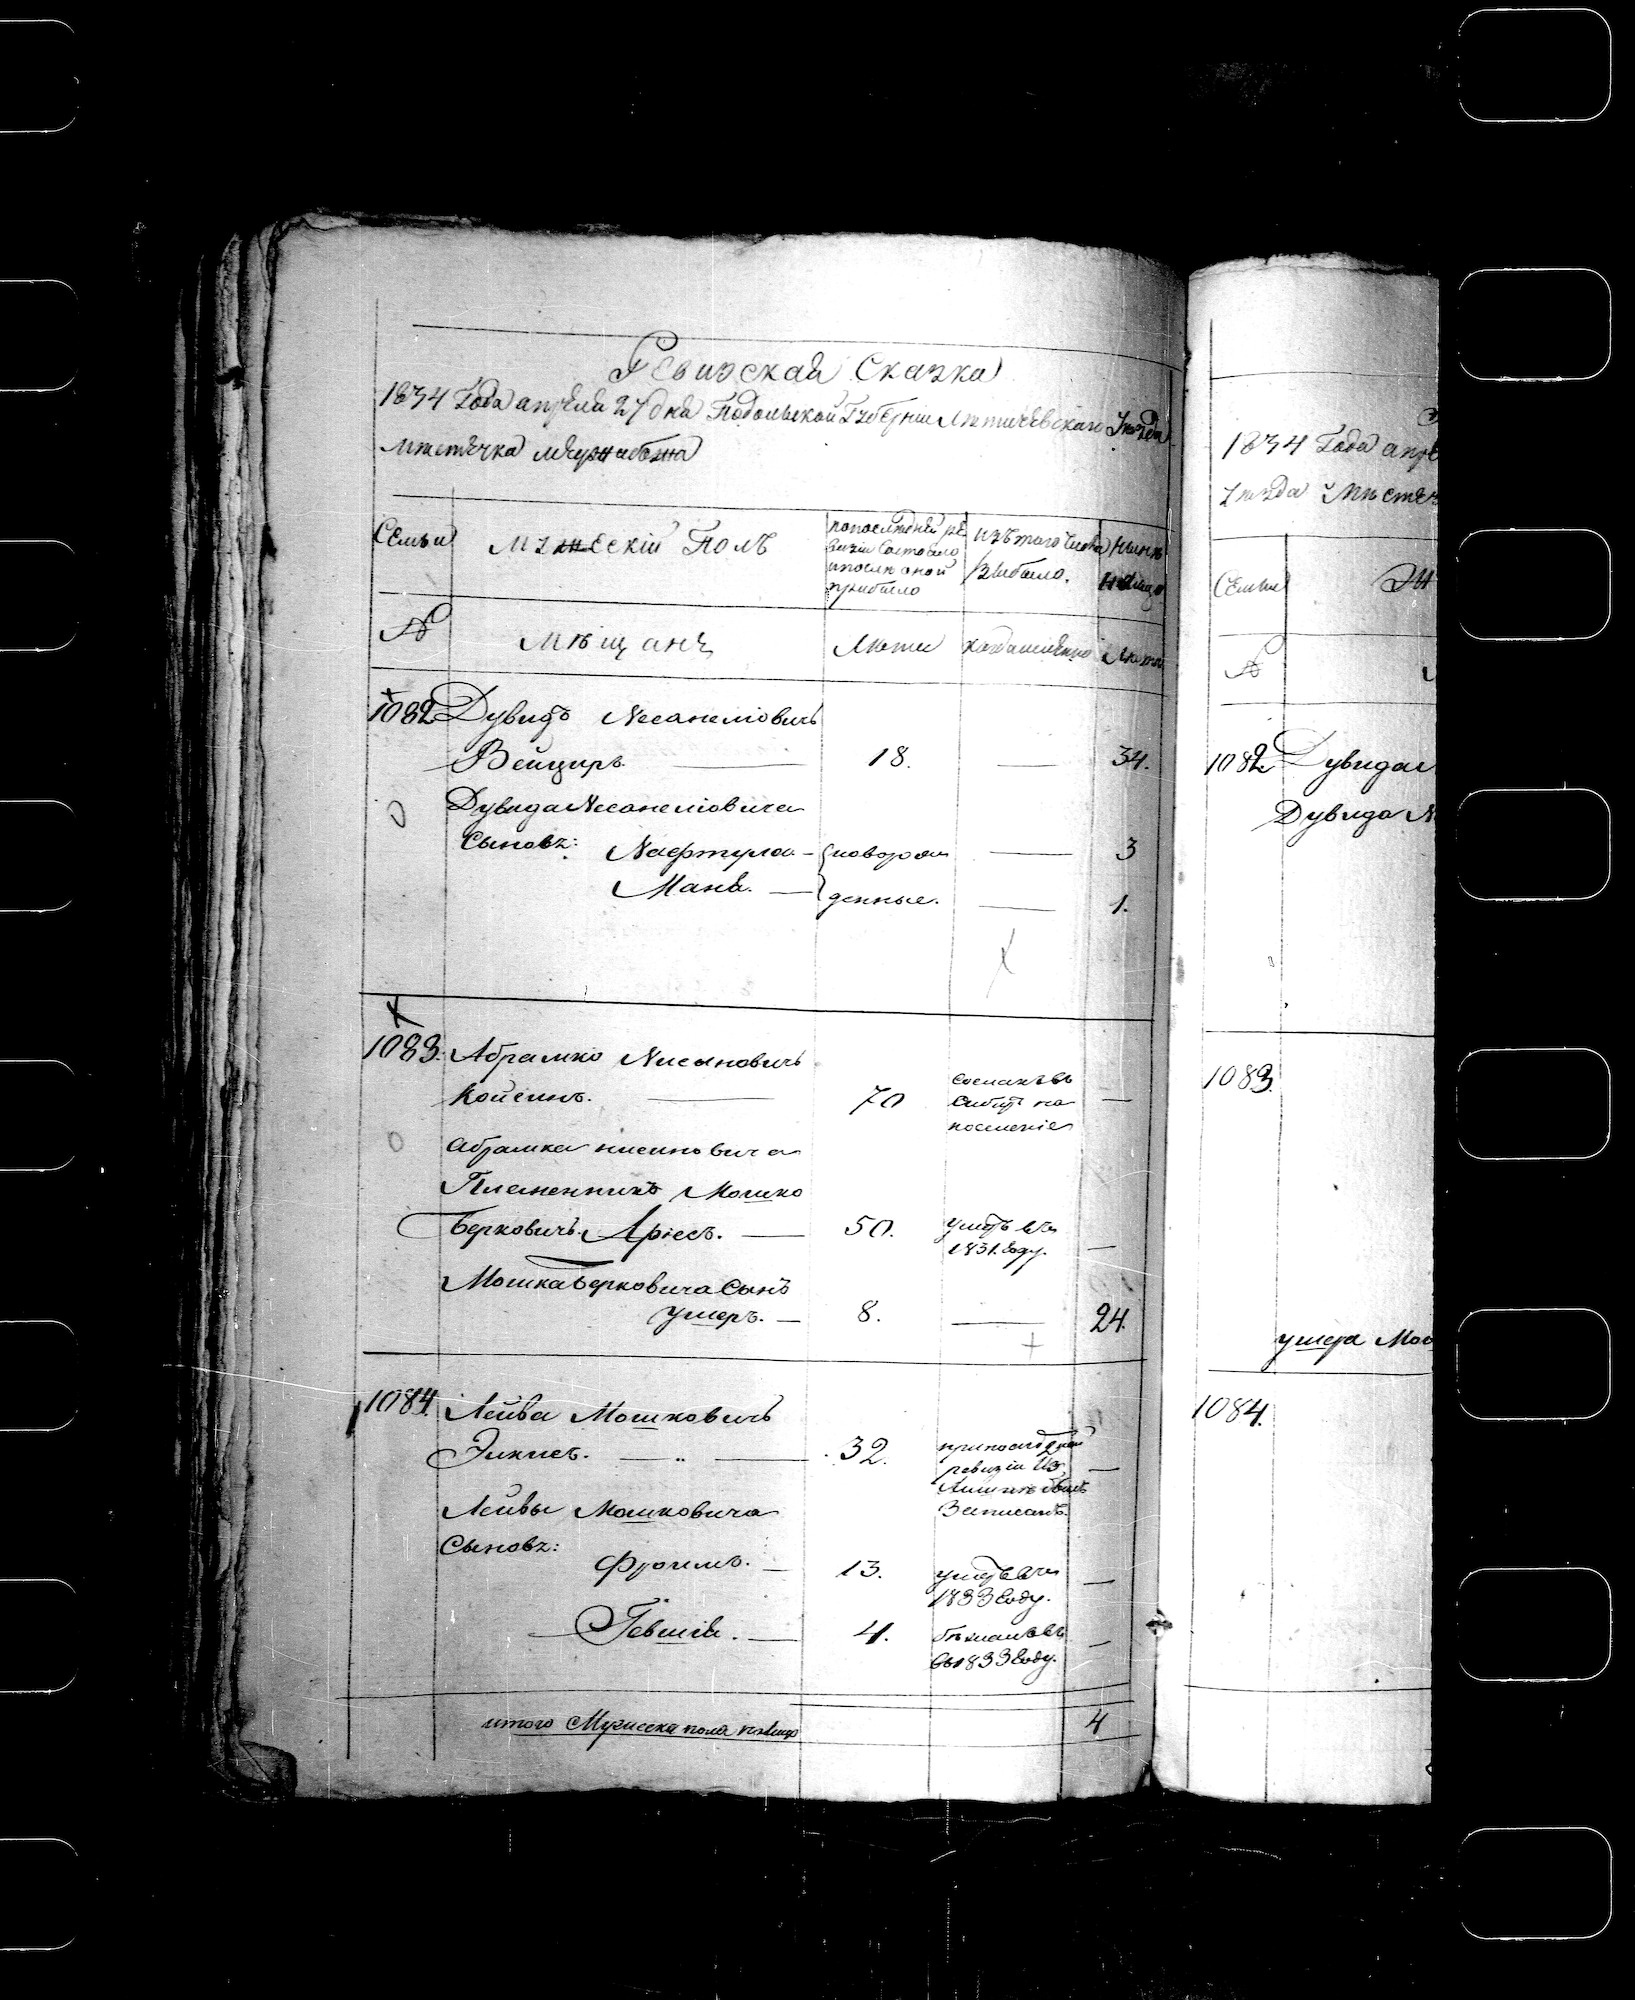 Ревизская Сказка
1834 Года апреля 27 дня Подольской Губернии Литичевскаго Уезда
Местечка Межибожа
Семьи
Мужескій Полъ
попоследней ре
визіи Состояло
ипосле оной
прибыло
изъ того Числа
Выбыло.
Ныне
налицо
№
Мещанъ
Лета
Когда именно
Лета
1082 Дувидъ Несанеліовичъ
Вейцыръ. 18. — 34.
Дувида Несанеліовича
Сыновъ: Нафтула — новорож — 3
Мана. — денные. — 1.
1083. Абрамко Нисановичъ
Койсинъ. 70 —
сосланъ въ
Сибирь на
поселеніе
Абрамка нисиновича
Племенникъ Мошко
Берковичъ Аріесъ. — 50. —
умеръ въ
1831. Году.
Мошка Берковича Сынъ
Ушеръ. — 8. — 24.
1084. Лейба Мошковичъ
Элкисъ. — 32. —
ревизіи Из
Записанъ.
Лейбы Мошковича
Сыновъ:
Фроимъ. — 13. —
умеръ въ
1833 Году.
Гевшія. — 4. —
бежалъ въ
1833 Году.
итого Мужеска пола налицо 4
1834 Года апре
Уезда Местеч
Семьи
№
1082 Дувида
Дувида Н
1083.
ушера Мош
1084.